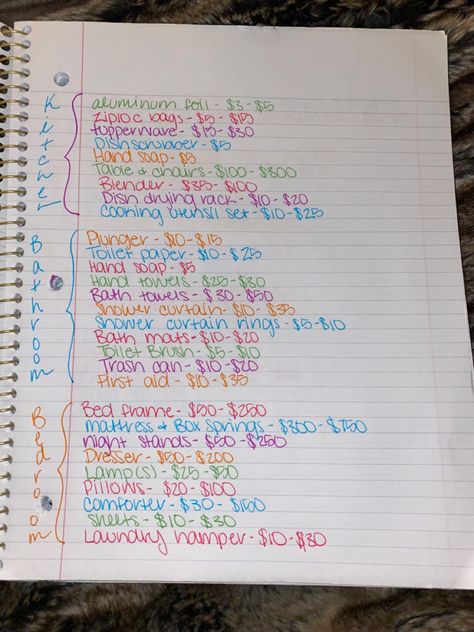 Kitchen
aluminum foil - $3 - $5
Ziploc bags - $5 - $15
tupperware - $15 - $30
Dish scrubber - $5
Hand soap - $5
Table & chairs - $100 - $300
Blender - $35 - $100
Dish drying rack - $10 - $20
Cooking utensil set - $10 - $25
Bathroom
Plunger - $10 - $15
Toilet paper - $10 - $25
Hand soap - $5
Hand towels - $25 - $30
Bath towels - $30 - $50
Shower curtain - $10 - $35
Shower curtain rings - $5 - $10
Bath mats - $10 - $20
Toilet Brush - $5 - $10
Trash can - $10 - $20
First aid - $10 - $35
Bedroom
Bed frame - $50 - $250
mattress & Box springs - $300 - $750
night stands - $50 - $250
Dresser - $50 - $200
Lamp(s) - $25 - $50
Pillows - $20 - $100
Comforter - $30 - $150
Sheets - $10 - $30
Laundry hamper - $10 - $30